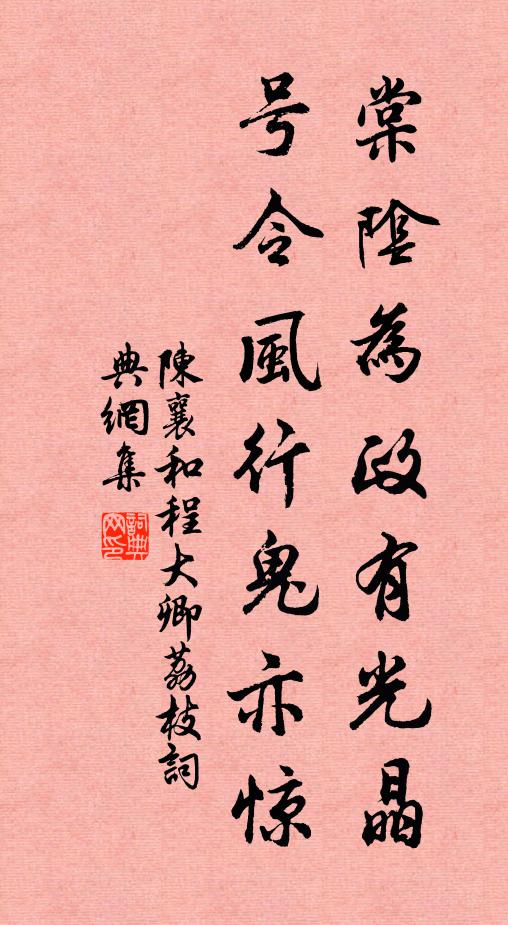 棠陰為政有光晶
号令風行鬼亦惊
陳襄和程大卿荔枝詞
典網集
詞典网印